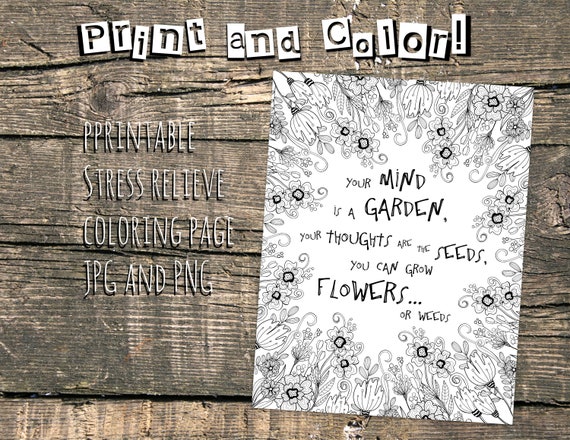 Print and Color!
PPRINTABLE
STRESS RELIEVE
COLORING PAGE
JPG AND PNG
YOUR MIND
IS A GARDEN,
YOUR THOUGHTS ARE THE SEEDS,
YOU CAN GROW
FLOWERS...
OR WEEDS